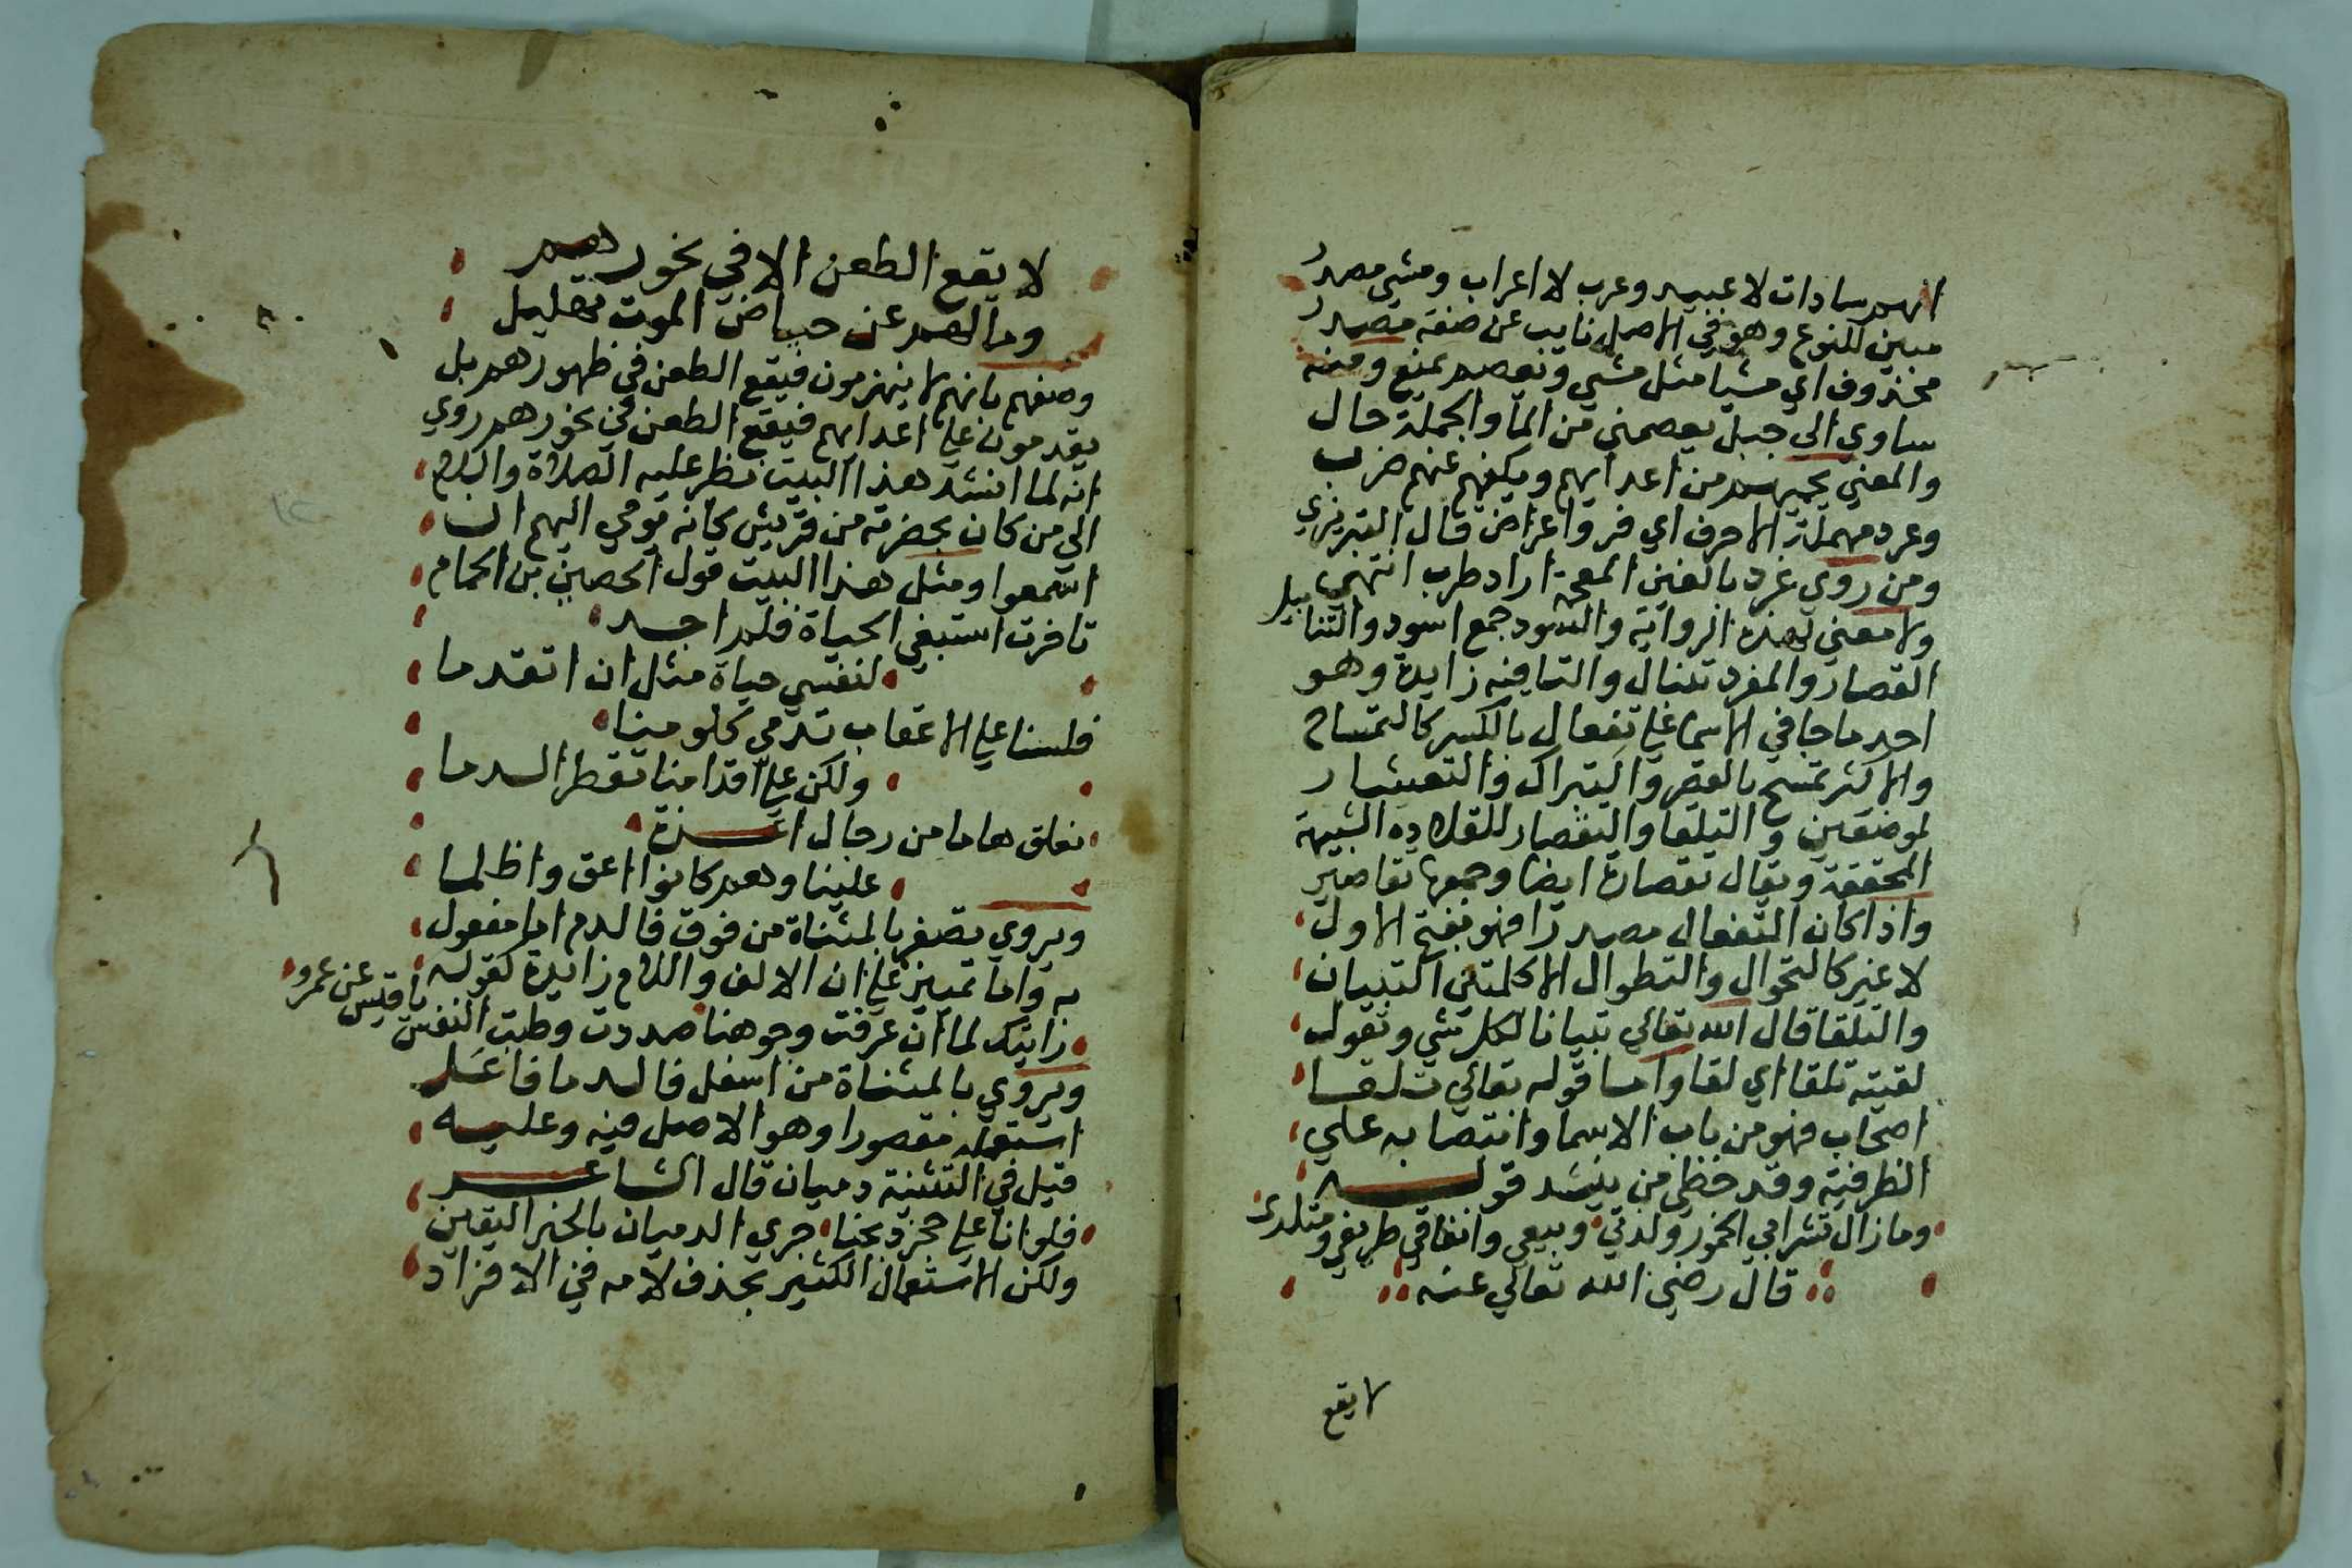 انهم سادات لا عبيد وعرب لا اعراب ومشي مصدر
مبين للنوع وهو في الاصل نايب عن صفة مصدر
محذوف اي مشيا مثل مشي ويعصم يمنع ومنه
ساوي الي جبل يعصمني من الما والجملة حال
والمعني يحميهم من اعدايهم ويكفهم عنهم ضرب
وعرد مهملة الاحرف اي فر واعراض قال التبريزي
ومن روي غرد بالغين المعجمة اراد طرب انتهي
ولا معني لهذه الرواية والسود جمع اسود والتنابيل
القصار والمفرد تنبال والتا فيه زايدة وهو
احد ما جا في الاسما علي تفعال بالكسر كالتمساح
والاكثر تمسح بالقصر والتبراك والتعشار
لموضعين والتلقا والتقصار للقلادة الشبيهة
المخنقة ويقال تقصارة ايضا وجمعها تقاصير
واذا كان التفعال مصدرا فهو بفتح الاول
لا غير كالتجوال والتطوال الا كلمتين التبيان
والتلقا قال الله تعالي تبيانا لكل شي وتقول
لقيته تلقا اي لقا واما قوله تعالي تلقا
اصحاب فهو من باب الاسما وانتصابه علي
الظرفية وقد خطي من ينشد قوله
وما زال تشرابي الخمور ولذتي وبيعي وانفاقي طريفي ومتلدي
قال رضي الله تعالي عنه
لا يقع
لا يقع الطعن الا في نحورهم
وما لهم عن حياض الموت تهليل
وصفهم بانهم لا ينهزمون فيقع الطعن في ظهورهم بل
يقدمون علي اعدايهم فيقع الطعن في نحورهم روي
انه لما انشد هذا البيت نظر عليه الصلاة والسلام
الي من كان بحضرته من قريش كانه يومي اليهم ان
اسمعوا ومثل هذا البيت قول الحصين بن الحمام
تاخرت استبقي الحياة فلم اجد
لنفسي حياة مثل ان اتقدما
فلسنا علي الاعقاب تدمي كلومنا
ولكن علي اقدامنا تقطر الدما
نفلق هاما من رجال اعزة
علينا وهم كانوا اعق واظلما
ويروي تقطر بالمثناة من فوق فالدم اما مفعول
به واما تمييز علي ان الالف واللام زايدة كقوله
رايتك لما ان عرفت وجوهنا صددت وطبت النفس يا قيس عن عمرو
ويروي بالمثناة من اسفل فالدما فاعل
استعمله مقصورا وهو الاصل فيه وعليه
قيل في التثنية دميان قال الشاعر
فلو انا علي حجر ذبحنا جري الدميان بالخبر اليقين
ولكن الاستعمال الكثير بحذف لامه في الافراد